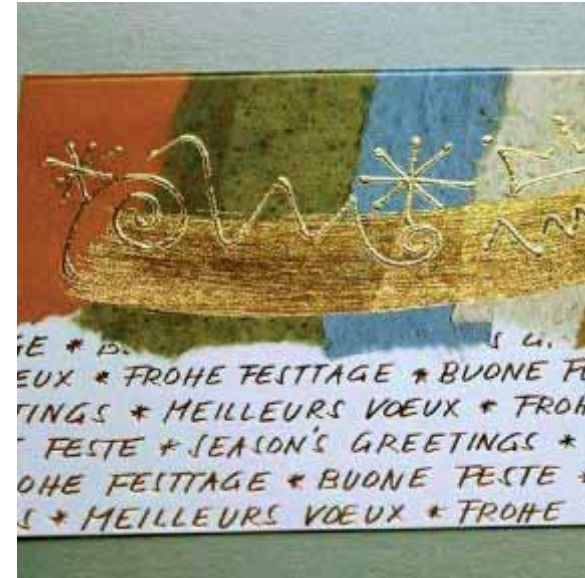 GE * B
EUX * FROHE FESTTAGE * BUONE F
TINGS * MEILLEURS VOEUX * FROH
FESTE * SEASON'S GREETINGS *
OHE FESTTAGE * BUONE FESTE *
S * MEILLEURS VOEUX * FROHE